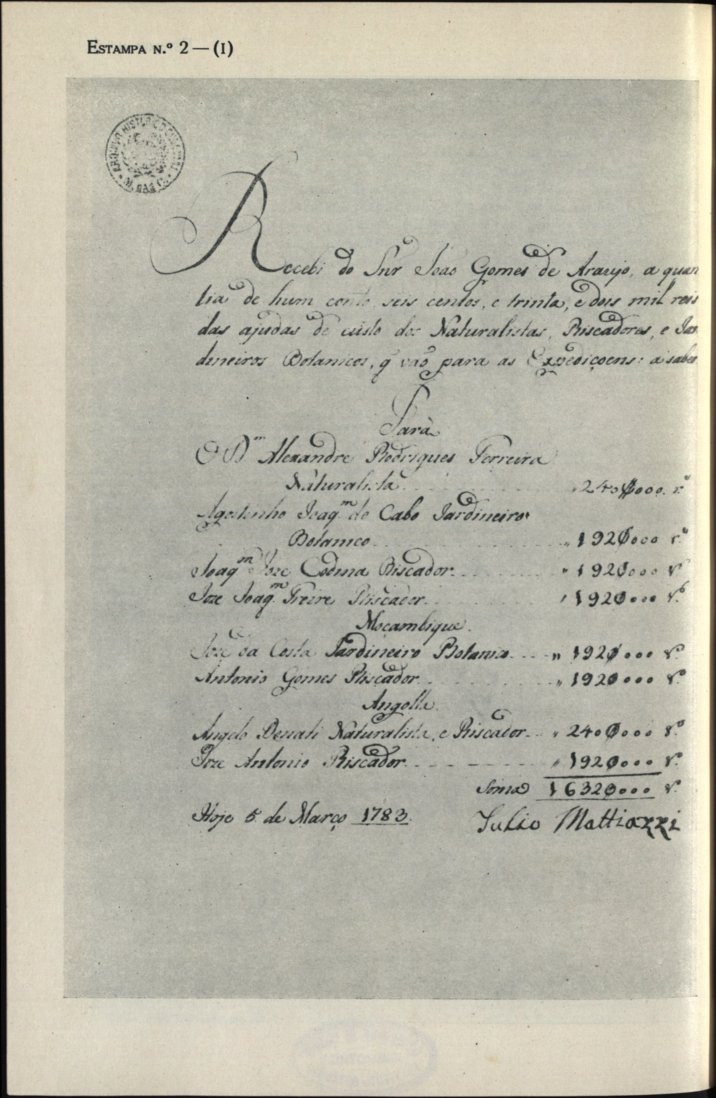 ESTAMPA N.º 2 — (I)
ARQUIVO HISTORICO COLONIAL
Recebi do Snr João Gomes de Araujo, a quan
tia de hum conto, seis centos, e trinta, e dois mil reis
das ajudas de custo dos Naturalistas, Riscadores, e Jar
dineiros Botanicos, q̃ vão para as Expediçoens: a saber
Pará
O Dr. Alexandre Rodrigues Ferreira
Naturalista 240$000 r.s
Agostinho Joaq.m do Cabo Jardineiro
Botanico 192$000 r.s
Joaq.m Joze Codina Riscador 192$000 r.s
Joze Joaq.m Freire Riscador 192$000 r.s
Moçambique
Joze da Costa Jardineiro Botanico 192$000 r.s
Antonio Gomes Riscador 192$000 r.s
Angolla
Angelo Donati Naturalista, e Riscador 240$000 r.s
Joze Antonio Riscador 192$000 r.s
Soma 1632$000 r.s
Hoje 5 de Março 1783.
Julio Mattiazzi